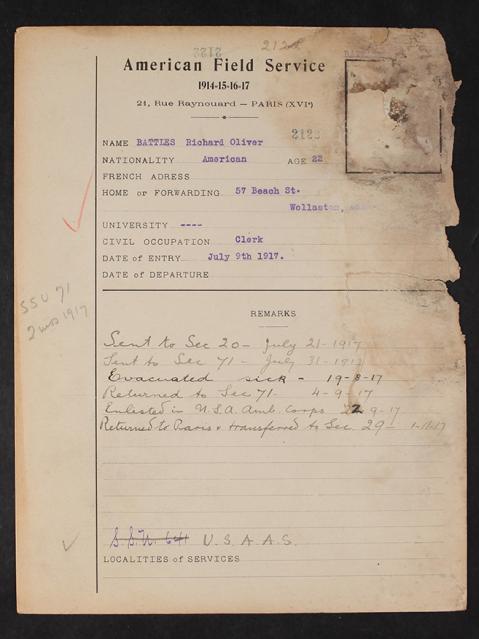 2122 2122
BATTLES
American Field Service
1914-15-16-17
21, Rue Raynouard — PARIS (XVIe)
2122
NAME BATTLES Richard Oliver
NATIONALITY American AGE 22
FRENCH ADRESS
HOME or FORWARDING 57 Beach St.
Wollaston,
UNIVERSITY ----
CIVIL OCCUPATION Clerk
DATE of ENTRY July 9th 1917.
DATE of DEPARTURE
SSU 71
2 mos 1917
REMARKS
Sent to Sec 20 - July 21-1917
Sent to Sec 71 - July 31-1917
Evacuated sick - 19-8-17
Returned to Sec 71- 4-9-17
Enlisted in U.S.A. Amb. Corps 22 9-17
Returned to Paris & transferred to Sec. 29-
S.S.U. 641 U.S.A.A.S.
LOCALITIES of SERVICES